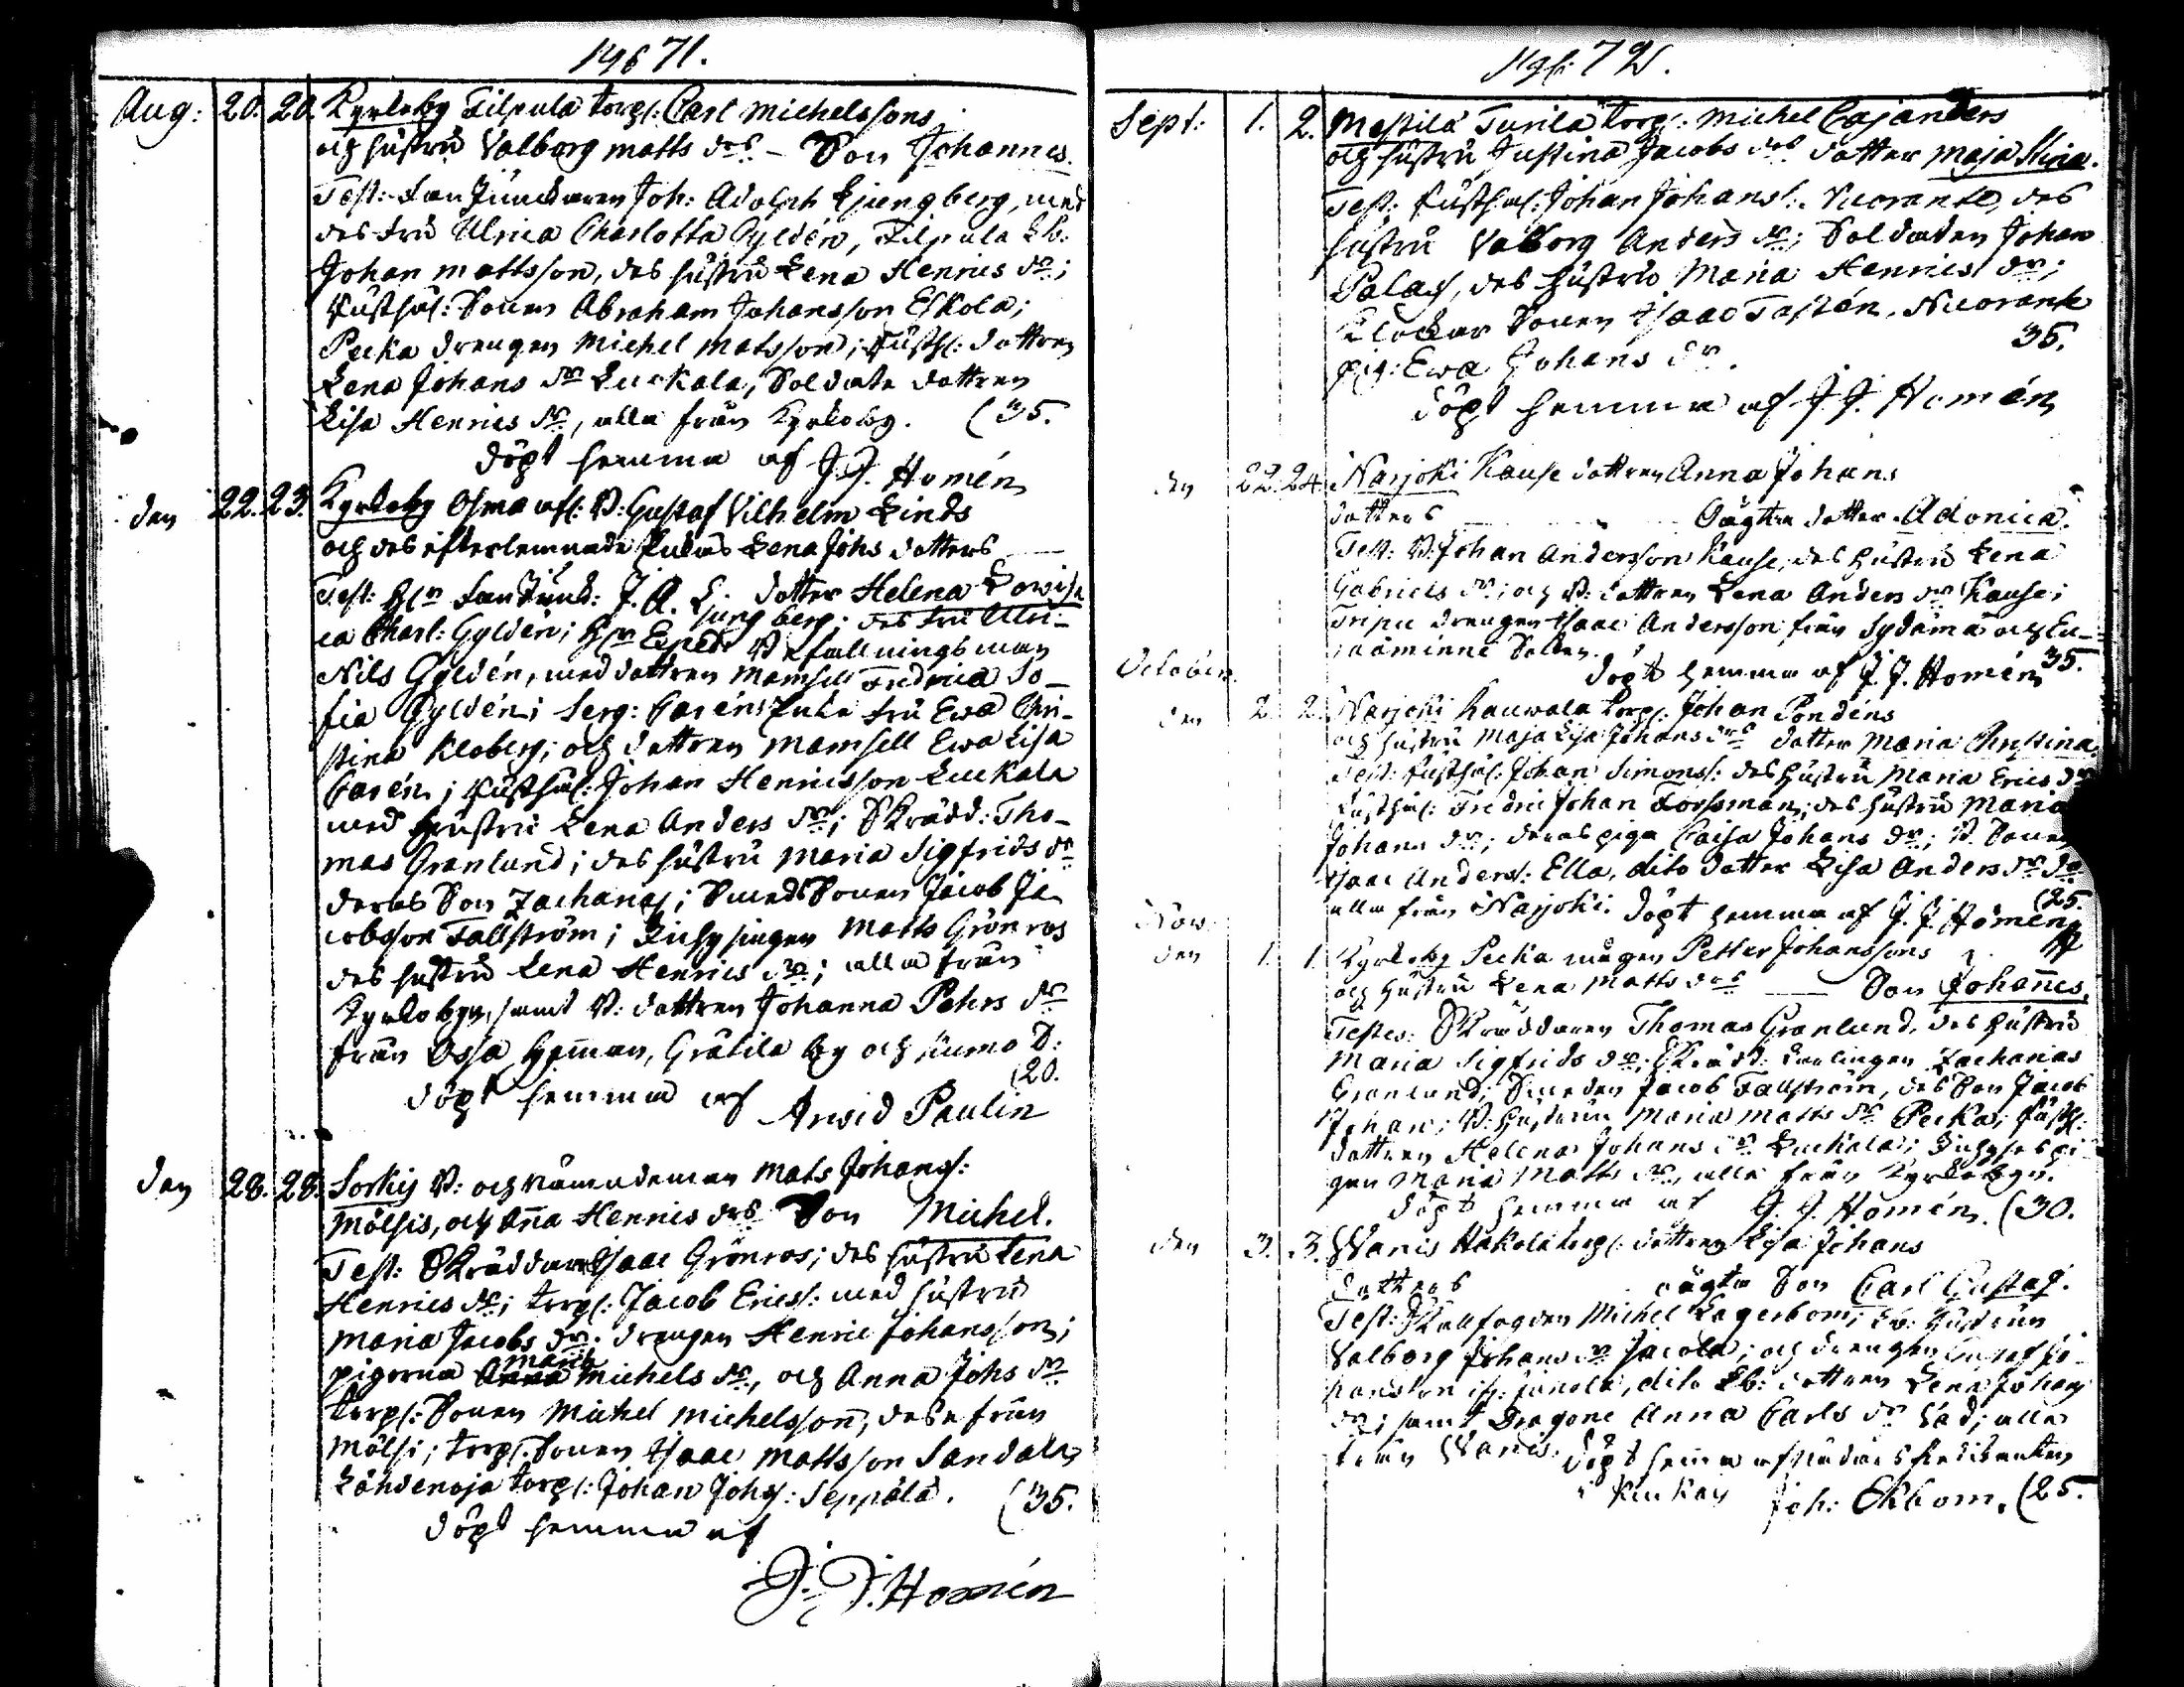 71.
Aug: 20. 20. Kyrkoby Filpula torp: Carl Michelssons
och hustru Valborg Matts drs – Son Johannes.
Test: Fanjunckaren Joh: Adolph Ljungberg, med
des fru Ulrica Charlotta Gyldén, Filpula Lb:
Johan Mattsson, des hustru Lena Henrics dr;
Rusthål: Sonen Abraham Johansson Eskola;
Pecka drengen Michel Matsson; Rusth: dottren
Lena Johans dr Luckala, Soldate dottren
Lisa Henrics dr, alla från Kyrkoby. (35.
döpt hemma af J. J. Homén
den 22. 23. Kyrkoby Osma afl: B: Gustaf Vilhelm Linds
och des efterlemnade Enkas Lena Johs dotters
dotter Helena Lowisa
Test: Hr Fanjunk: J. A. Ljungberg; des fru Ulri-
ca Charl: Gyldén; Hr Exped: Befallningsman
Nils Gyldén, med dottren Mamsell Fredrica So-
fia Gyldén; Serg: Caréns Enke fru Ewa Chri-
stina Kloberg; och dottren Mamsell Ewa Lisa
Carén; Rusthål: Johan Henricsson Luckala
med hustru Lena Anders dr; Skrädd: Tho-
mas Granlund; des hustru Maria Sigfrids dr
deras Son Zacharias; Smeds Sonen Jacob Ja-
cobsson Fallström; Matts Grönros
des hustru Lena Henrics dr; alla från
Kyrkobyn, samt B: dottren Johanna Pehrs dr
från Ossa hemman, Gräkila by och Kumo S:
(20.
döpt hemma af Arvid Paulin
den 28. 28. Sorkis B: och nämndeman Mats Johans:
Mölsis, och Aña Henrics drs Son Michel.
Test: Skräddaren Isaac Grönros; des hustru Lena
Henrics dr; torp: Jacob Erics: med hustru
Maria Jacobs dr. drengen Henric Johansson;
pigorna Maria Michels dr, och Anna Johs dr
torp: Sonen Michel Michelsson, dese från
Mölsi; torp: Sonen Isaac Mattsson Sandala
Lähdenoja torp: Johan Johs: Seppälä. (35.
döpt hemma af
J. J. Homén
72.
Sept: 1. 2. Mestilä Turila torp: Michel Cajanders
och hustru Justina Jacobs drs dotter Maja Stina.
Test: Rusthål: Johan Johans: Nuorante, des
hustru Valborg Anders dr; Soldaten Johan
Palas, des hustru Maria Henrics dr;
Klockar Sonen Isaac Tastén, Nuorante
pig: Ewa Johans dr. 35.
döpt hemma af J. J. Homén
den 22. 24. Narjoki Kause dottren Anna Johans
dotters oägta dotter Adonica.
Test: B: Johan Andersson Kause, des hustru Lena
Gabriels dr; och B: dottren Lena Anders dr Kause;
drengen Isaac Andersson från Sydämä och Eu-
raåminne Socken.
döpt hemma af J. J. Homén 35.
October
den 2. 2. Narjoki Kauwala torp: Johan Pondéns
och hustru Maja Lisa Johans drs dotter Maria Christina.
Test: Rusthål: Johan Simons: des hustru Maria Erics dr
Rusthål: Fredric Johan Forssman; des hustru Maria
Johans dr; deras piga Caisa Johans dr; B. Sonen
Isaac Anders: Ella, dito dotter Lisa Anders dr do
alla från Narjoki. döpt hemma af J. J. Homén (25.
Nov.
den 1. 1. Kyrkoby Pecka mågen Petter Johanssons
och hustru Lena Matts drs Son Johañes.
Testes: Skräddaren Thomas Granlund, des hustru
Maria Sigfrids dr; Skrädd: Lärlingen Zacharias
Granlund; Smeden Jacob Fallström, des Son Jacob
Johan; B: hustrun Maria Matts dr Pecka; Rusth:
dottren Helena Johans dr Luckala; pi-
gan Maria Matts dr, alla från Kyrkobyn.
döpt hemma af J. J. Homén. (30.
den 3. 3. Wanis Hakola torp: dottren Lisa Johans
dotters oägta Son Carl Gustaf.
Test: Skallfogden Michel Lagerbom; Lb: hustrun
Valborg Johans dr Jacola; och drengen Gustaf Jo-
hansson dito Lb: dottren Lena Johans
dr; samt Dragone Anna Carls dr alla
från Wanis. döpt hemma af
i Kiukais Joh: Ekbom. (25.